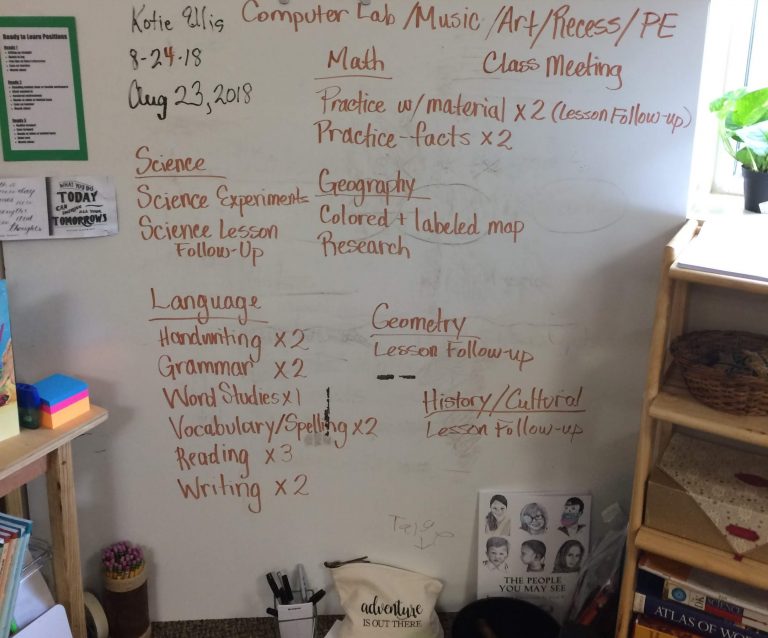 Katie Ellis
8-24-18
Aug 23, 2018
Computer Lab / Music / Art / Recess / PE
Math
Class Meeting
Practice w/ material x 2 (Lesson Follow-up)
Practice-facts x 2
Science
Science Experiments
Science Lesson
Follow-Up
Geography
Colored + labeled map
Research
Language
Handwriting x 2
Grammar x 2
Word Studies x 1
Vocabulary/Spelling x 2
Reading x 3
Writing x 2
Geometry
Lesson Follow-up
History/Cultural
Lesson Follow-up
Ready to Learn Positions
Ready 1
Ready 2
Ready 3
WHAT YOU DO
TODAY
CAN IMPROVE ALL YOUR
TOMORROWS
thoughts
adventure
IS OUT THERE
THE PEOPLE
YOU MAY SEE
SCIENCE
ATLAS OF